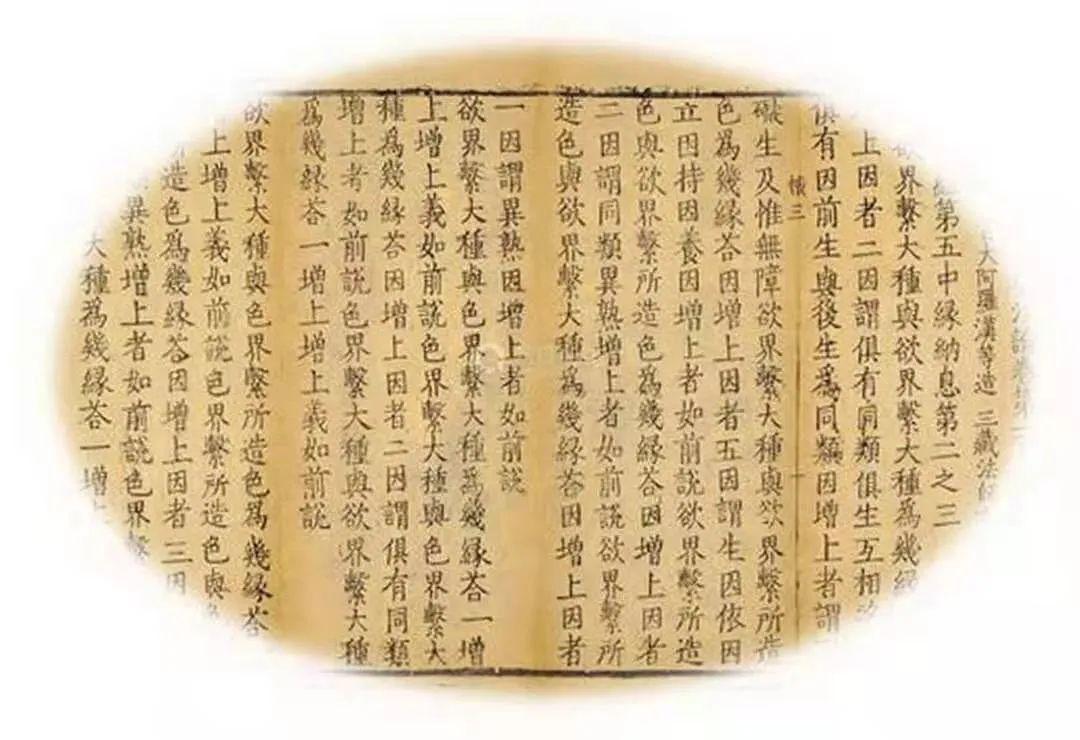 大阿羅漢等造 三藏法
第五中縁納息第二之三
欲界繫大種與欲界繫大種爲幾縁
上因者二因謂俱有同類俱生互相
俱有因前生與後生爲同類因增上者謂
懐三
礙生及惟無障欲界繫大種與欲界繫所造
色爲幾縁荅因增上因者五因謂生因依因
立因持因養因增上者如前說欲界繫所造
色與欲界繫所造色爲幾縁荅因增上因者
二因謂同類異熟增上者如前說欲界繫所
造色與欲界繫大種爲幾縁荅因增上因者
一因謂異熟因增上者如前說
欲界繫大種與色界繫大種爲幾縁荅一增
上增上義如前說色界繫大種與色界繫大
種爲幾縁荅因增上因者二因謂俱有同類
增上者如前說色界繫大種與欲界繫大種
爲幾縁荅一增上增上義如前說
欲界繫大種與色界繫所造色爲幾縁荅
上增上義如前說色界繫所造色與
造色爲幾縁荅因增上因者三因
異熟增上者如前說色界繫
大種爲幾縁荅一增